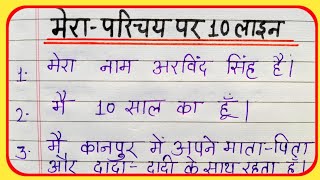 मेरा-परिचय पर 10 लाइन
1. मेरा नाम अरविंद सिंह है।
2. मै 10 साल का हूँ।
3. मै कानपुर में अपने माता-पिता
और दादा-दादी के साथ रहता हूँ।